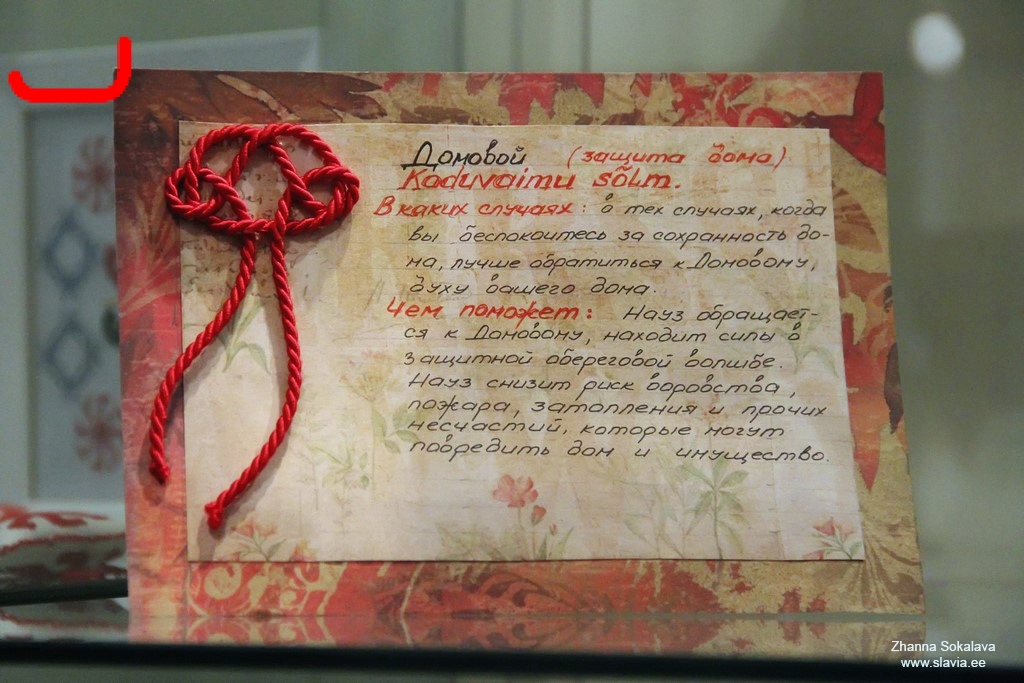 Домовой (защита дома)
Koduvaimu sõlm.
В каких случаях: в тех случаях, когда
вы беспокоитесь за сохранность до-
ма, лучше обратиться к Домовому,
духу вашего дома.
Чем поможет: Науз обращает-
ся к Домовому, находит силы в
защитной обереговой волшбе.
Науз снизит риск воровства,
пожара, затопления и прочих
несчастий, которые могут
повредить дом и имущество.
Zhanna Sokalava
www.slavia.ee